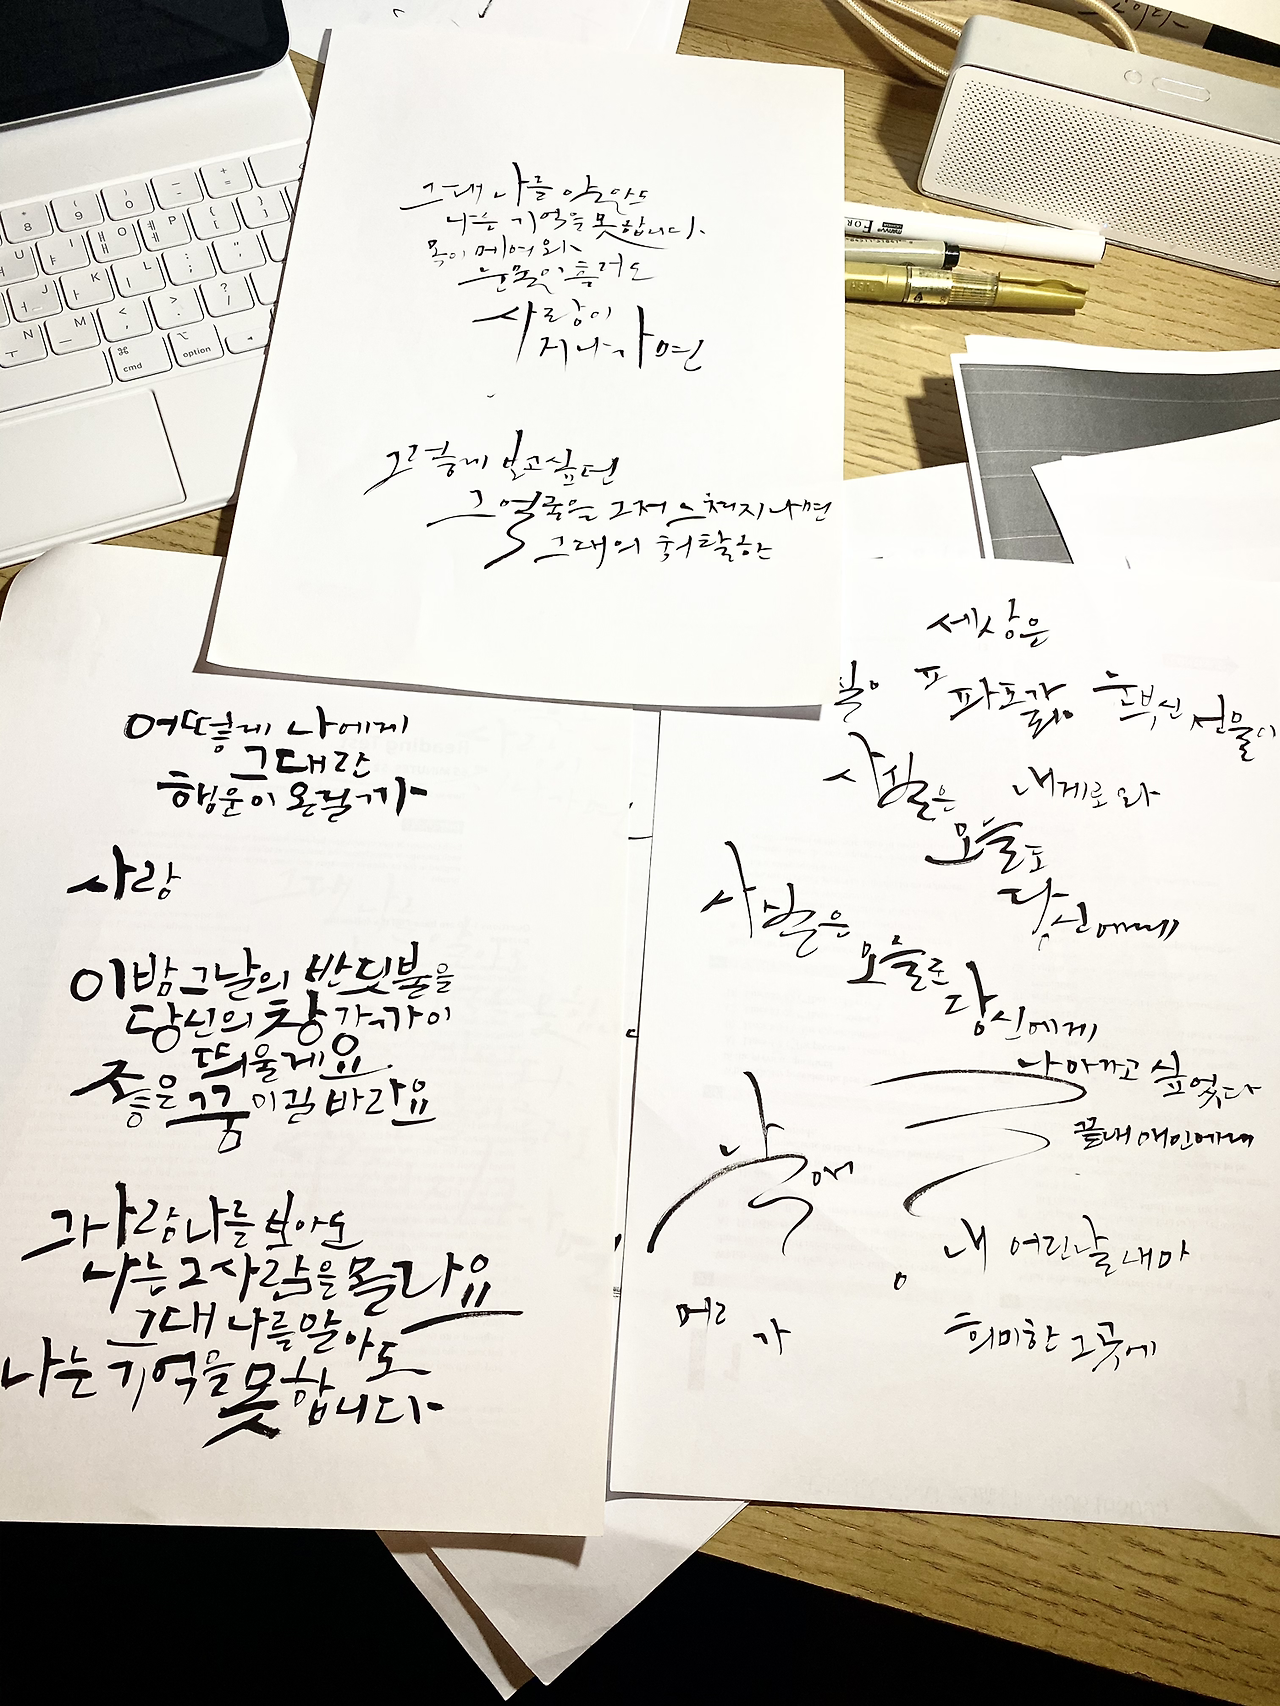 그대 나를 알아도
나는 기억을 못합니다
목이 메여와
눈물이 흘러도
사랑이
지나가면
그렇게 보고싶던
그 얼굴은 그저 스쳐지나면
그대의 허탈한
어떻게 나에게
그대란
행운이 온걸까
사랑
이밤 그날의 반딧불을
당신의 창 가까이
띄울게요
좋은 꿈이길 바라요
그사람 나를 보아도
나는 그사람을 몰라요
그대 나를 알아도
나는 기억을 못합니다
세상은
눈부신 선물이
사실은
내게로 와
오늘도
당신에게
사실은
오늘은
당신에게
나아가고 싶었다
내 어린날 내마
희미한 그곳에
머리
가
option
cmd